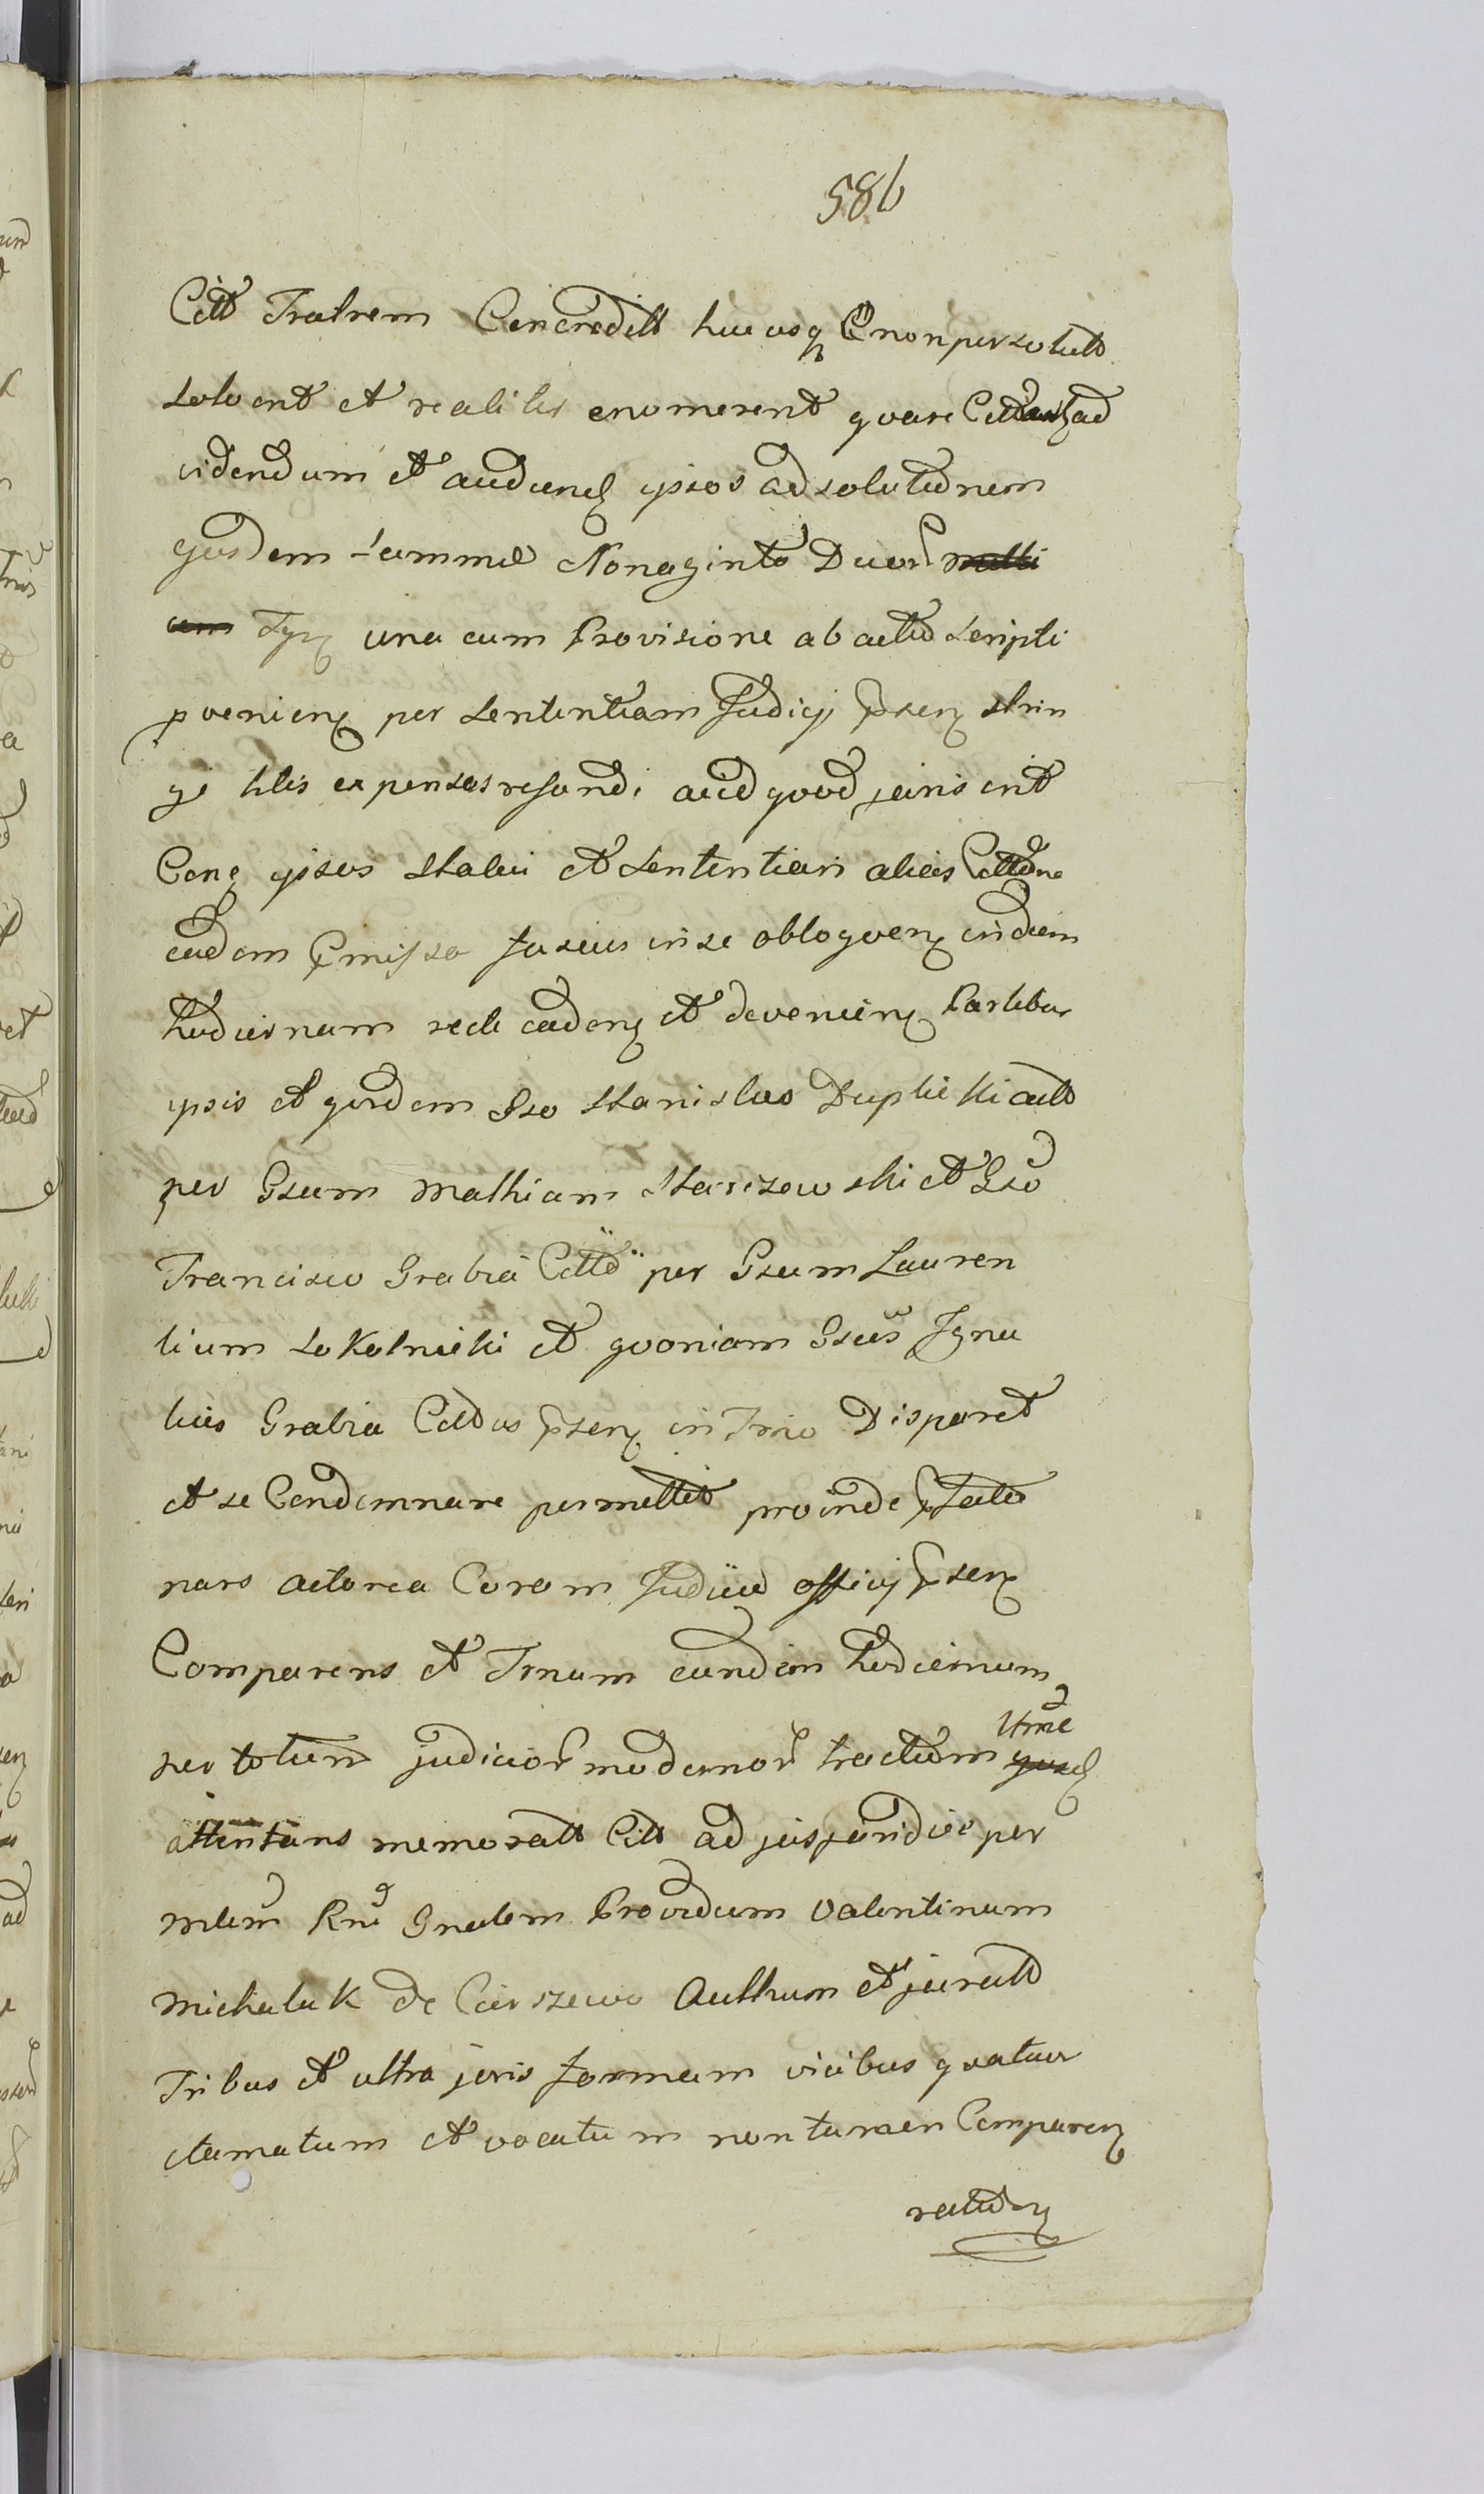 586
Citt Fratrem Concredill hucusq et non persolutt
solvent et realiter enumerent quare Citt ad
videndum et audiend ipsos ad solutionem
ejusdem summe Nonaginta Duor milli
um Tyn una cum Provisione ab actu scripti
pvenien per Sententiam Judicij psen strin
gi litis expensas refundi aliud quod juris erit
Conq ipsos Statui et Sententiari alias Cittone
eadem pmissa fusius in se obloquen in diem
hodiernam recte caden et devenien Partibus
ipsis et quidem Gso Stanislao Duplicki Actt
per Gsum Mathiam Staiszewski et Gso
Francisco Grabia Citto per Gsum Lauren
tium Sokolnicki et quoniam Gsus Igna
tius Grabia Cittus psen in Tmo Disparet
et se Condemnare permittit proinde pfata
pars actorea Coram Judicio officij psen
Comparens et Tmum eundem hodiernum
per totum judicior modernor tractum Ume
attentans memoratt Citt ad jusjuridice per
mtem Rni Gnalem Providum Valentinum
Michalak de Curszewo Authum et juratt
Tribus et ultra juris formam vicibus quatuor
clamatum et vocatum non tamen Comparen